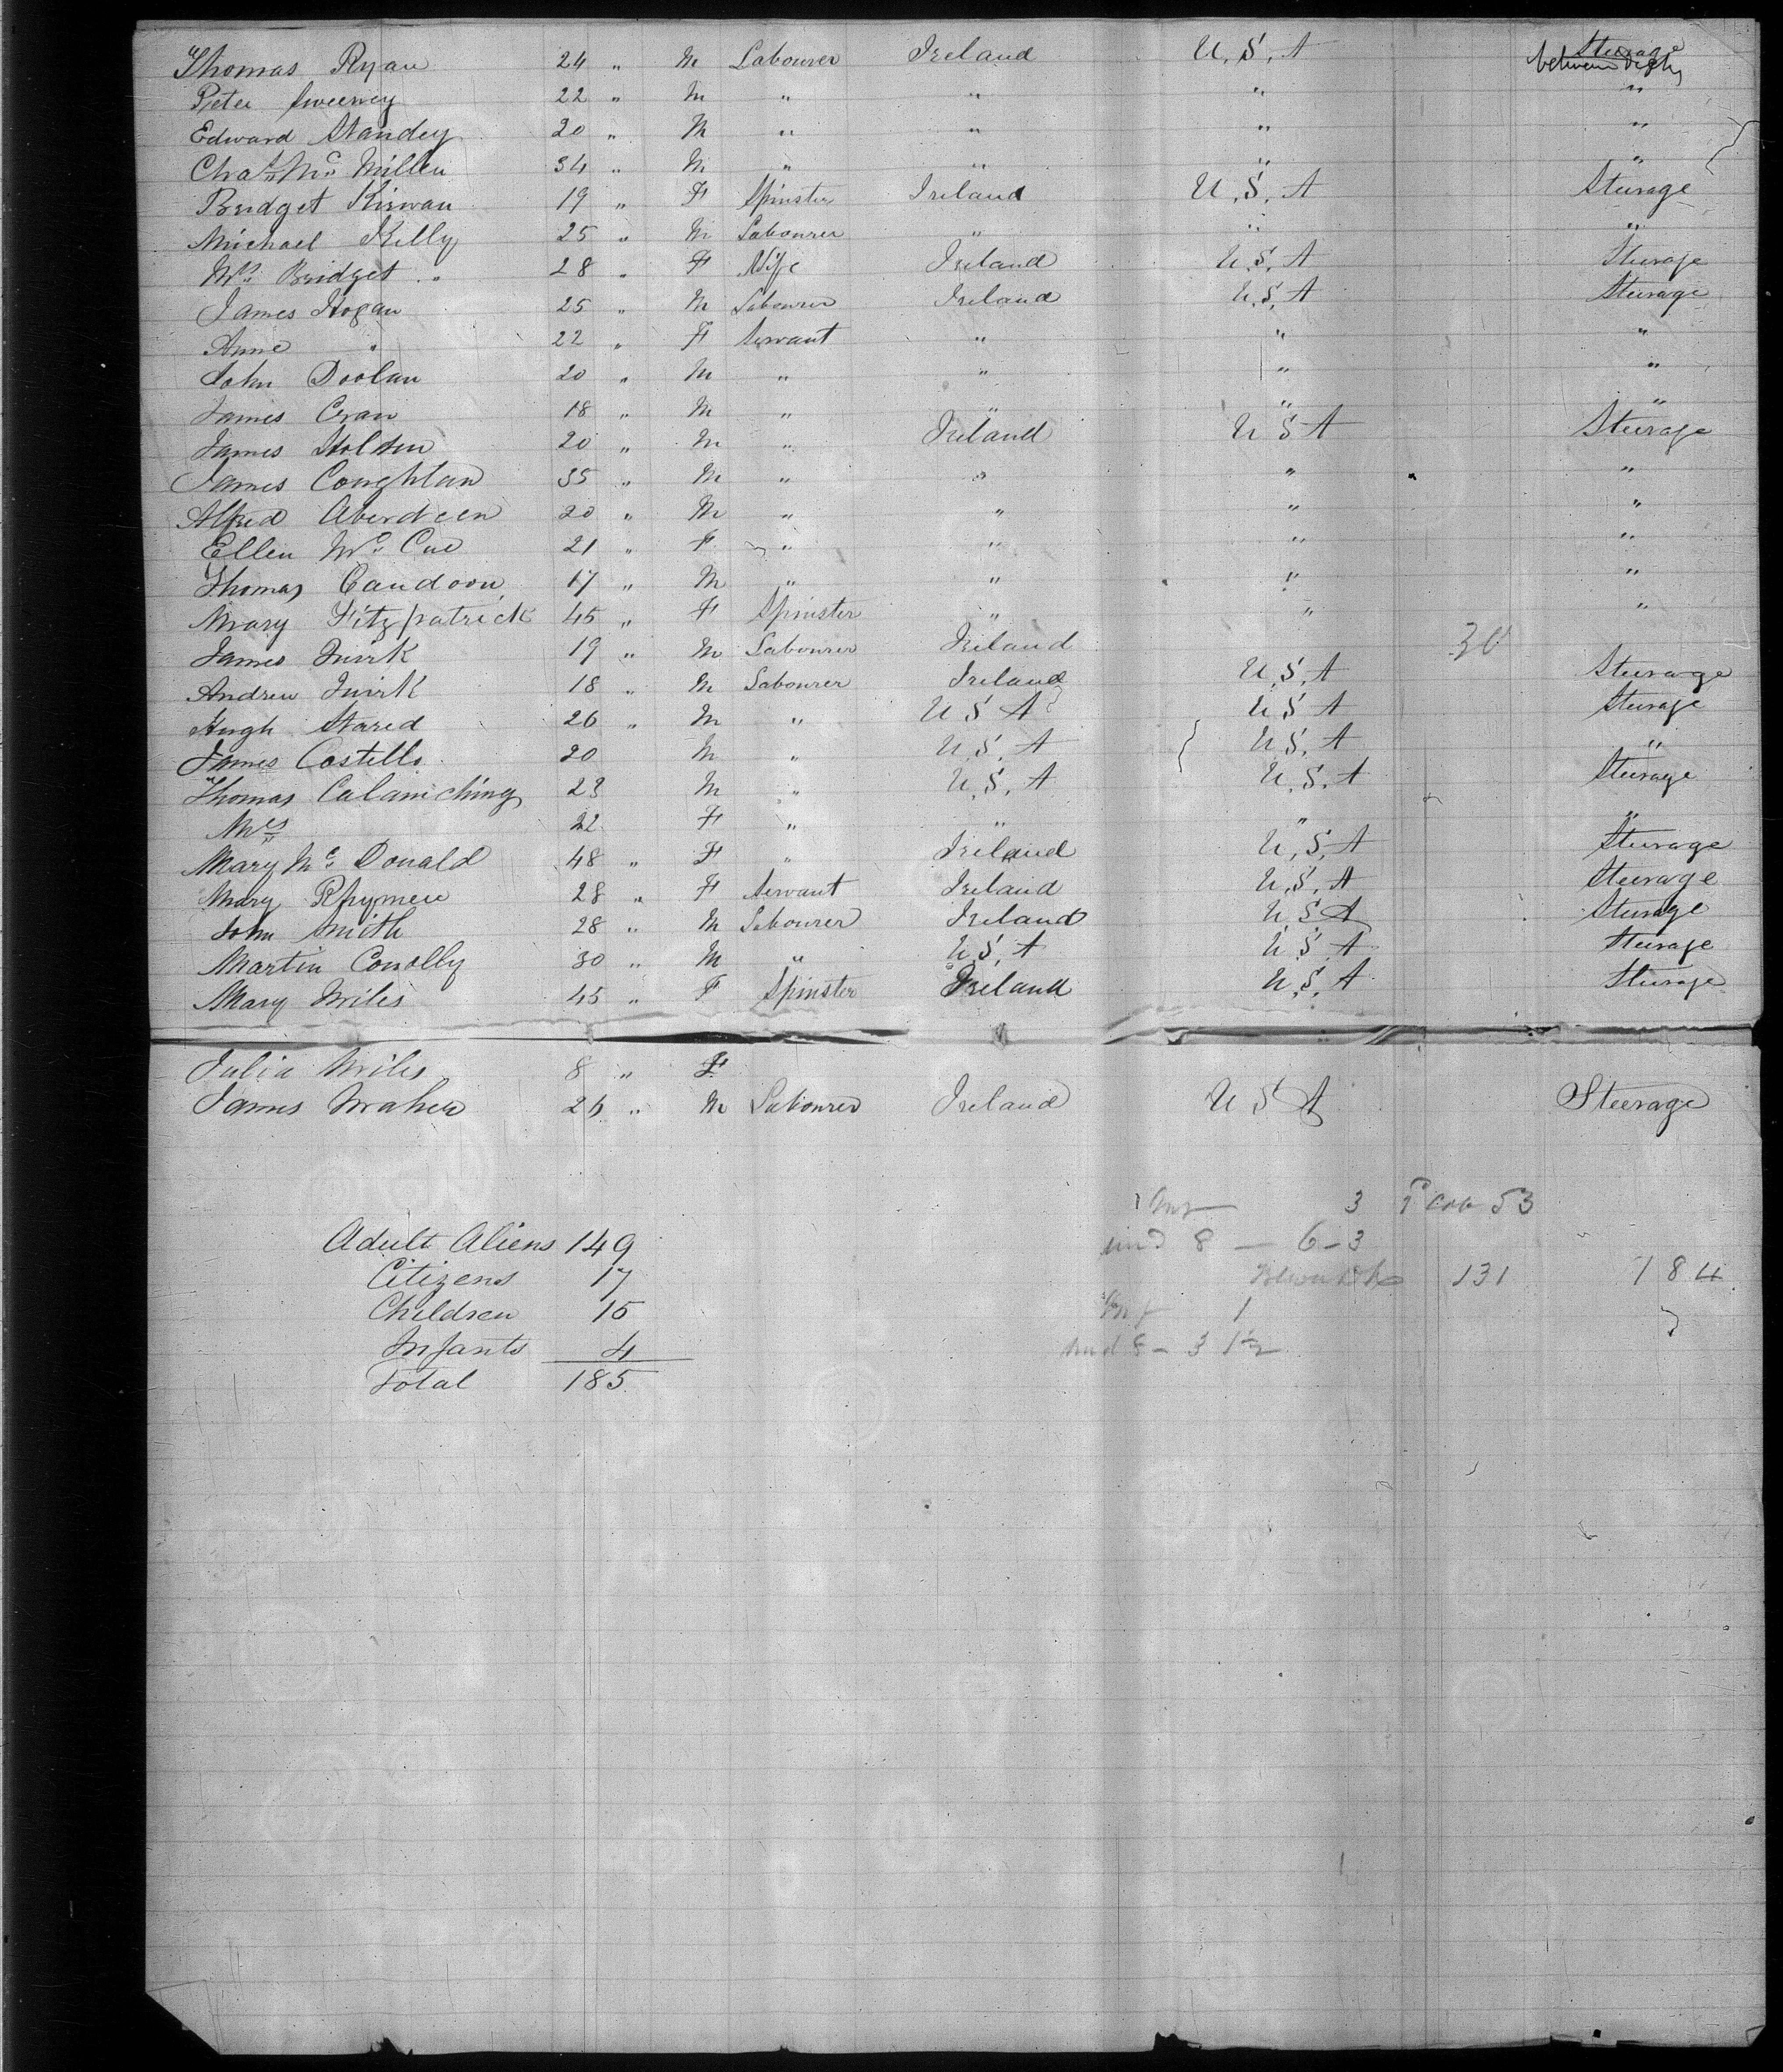 Thomas Ryan 24 " M Labourer Ireland U.S.A Steerage between Decks
Peter Sweeney 22 " M " " " "
Edward Standey 20 " M " " " "
Chas Mc Millen 34 " M " " " "
Bridget Kirwan 19 " F Spinster Ireland U.S.A Steerage
Michael Kelly 25 " M Labourer " " "
Mrs Bridget " 28 " F Wife Ireland U.S.A Steerage
James Hogan 25 " M Labourer Ireland U.S.A Steerage
Anne " 22 " F Servant " " "
John Doolan 20 " M " " " "
James Cran 18 " M " " " "
James Holden 20 " M " Ireland U S A Steerage
James Coughlan 35 " M " " " "
Alfred Aberdeen 20 " M " " " "
Ellen Mc Cue 21 " F " " " "
Thomas Caudoon 17 " M " " " "
Mary Fitzpatrick 45 " F Spinster " " "
James Quirk 19 " M Labourer Ireland 30
Andrew Quirk 18 " M Labourer Ireland U.S.A Steerage
Hugh Stared 26 " M " U S A U S A Steerage
James Costello 20 M " U.S.A U.S.A "
Thomas Calaniching 23 M " U.S.A U.S.A Steerage
Mrs " 22 F " " " "
Mary Mc Donald 48 " F " Ireland U.S.A Steerage
Mary Rhymen 28 " F Servant Ireland U.S.A Steerage
John Smith 28 " M Labourer Ireland U S A Steerage
Martin Conolly 30 " M " U.S.A U.S.A Steerage
Mary Miles 45 " F Spinster Ireland U.S.A Steerage
Julia Miles 8 " F
James Maher 26 " M Labourer Ireland U S A Steerage
3 53
Adult Aliens 149
8 — 6-3
Citizens 17
131 184
Children 15
1
Infants 4
8 - 3 1½
Total 185